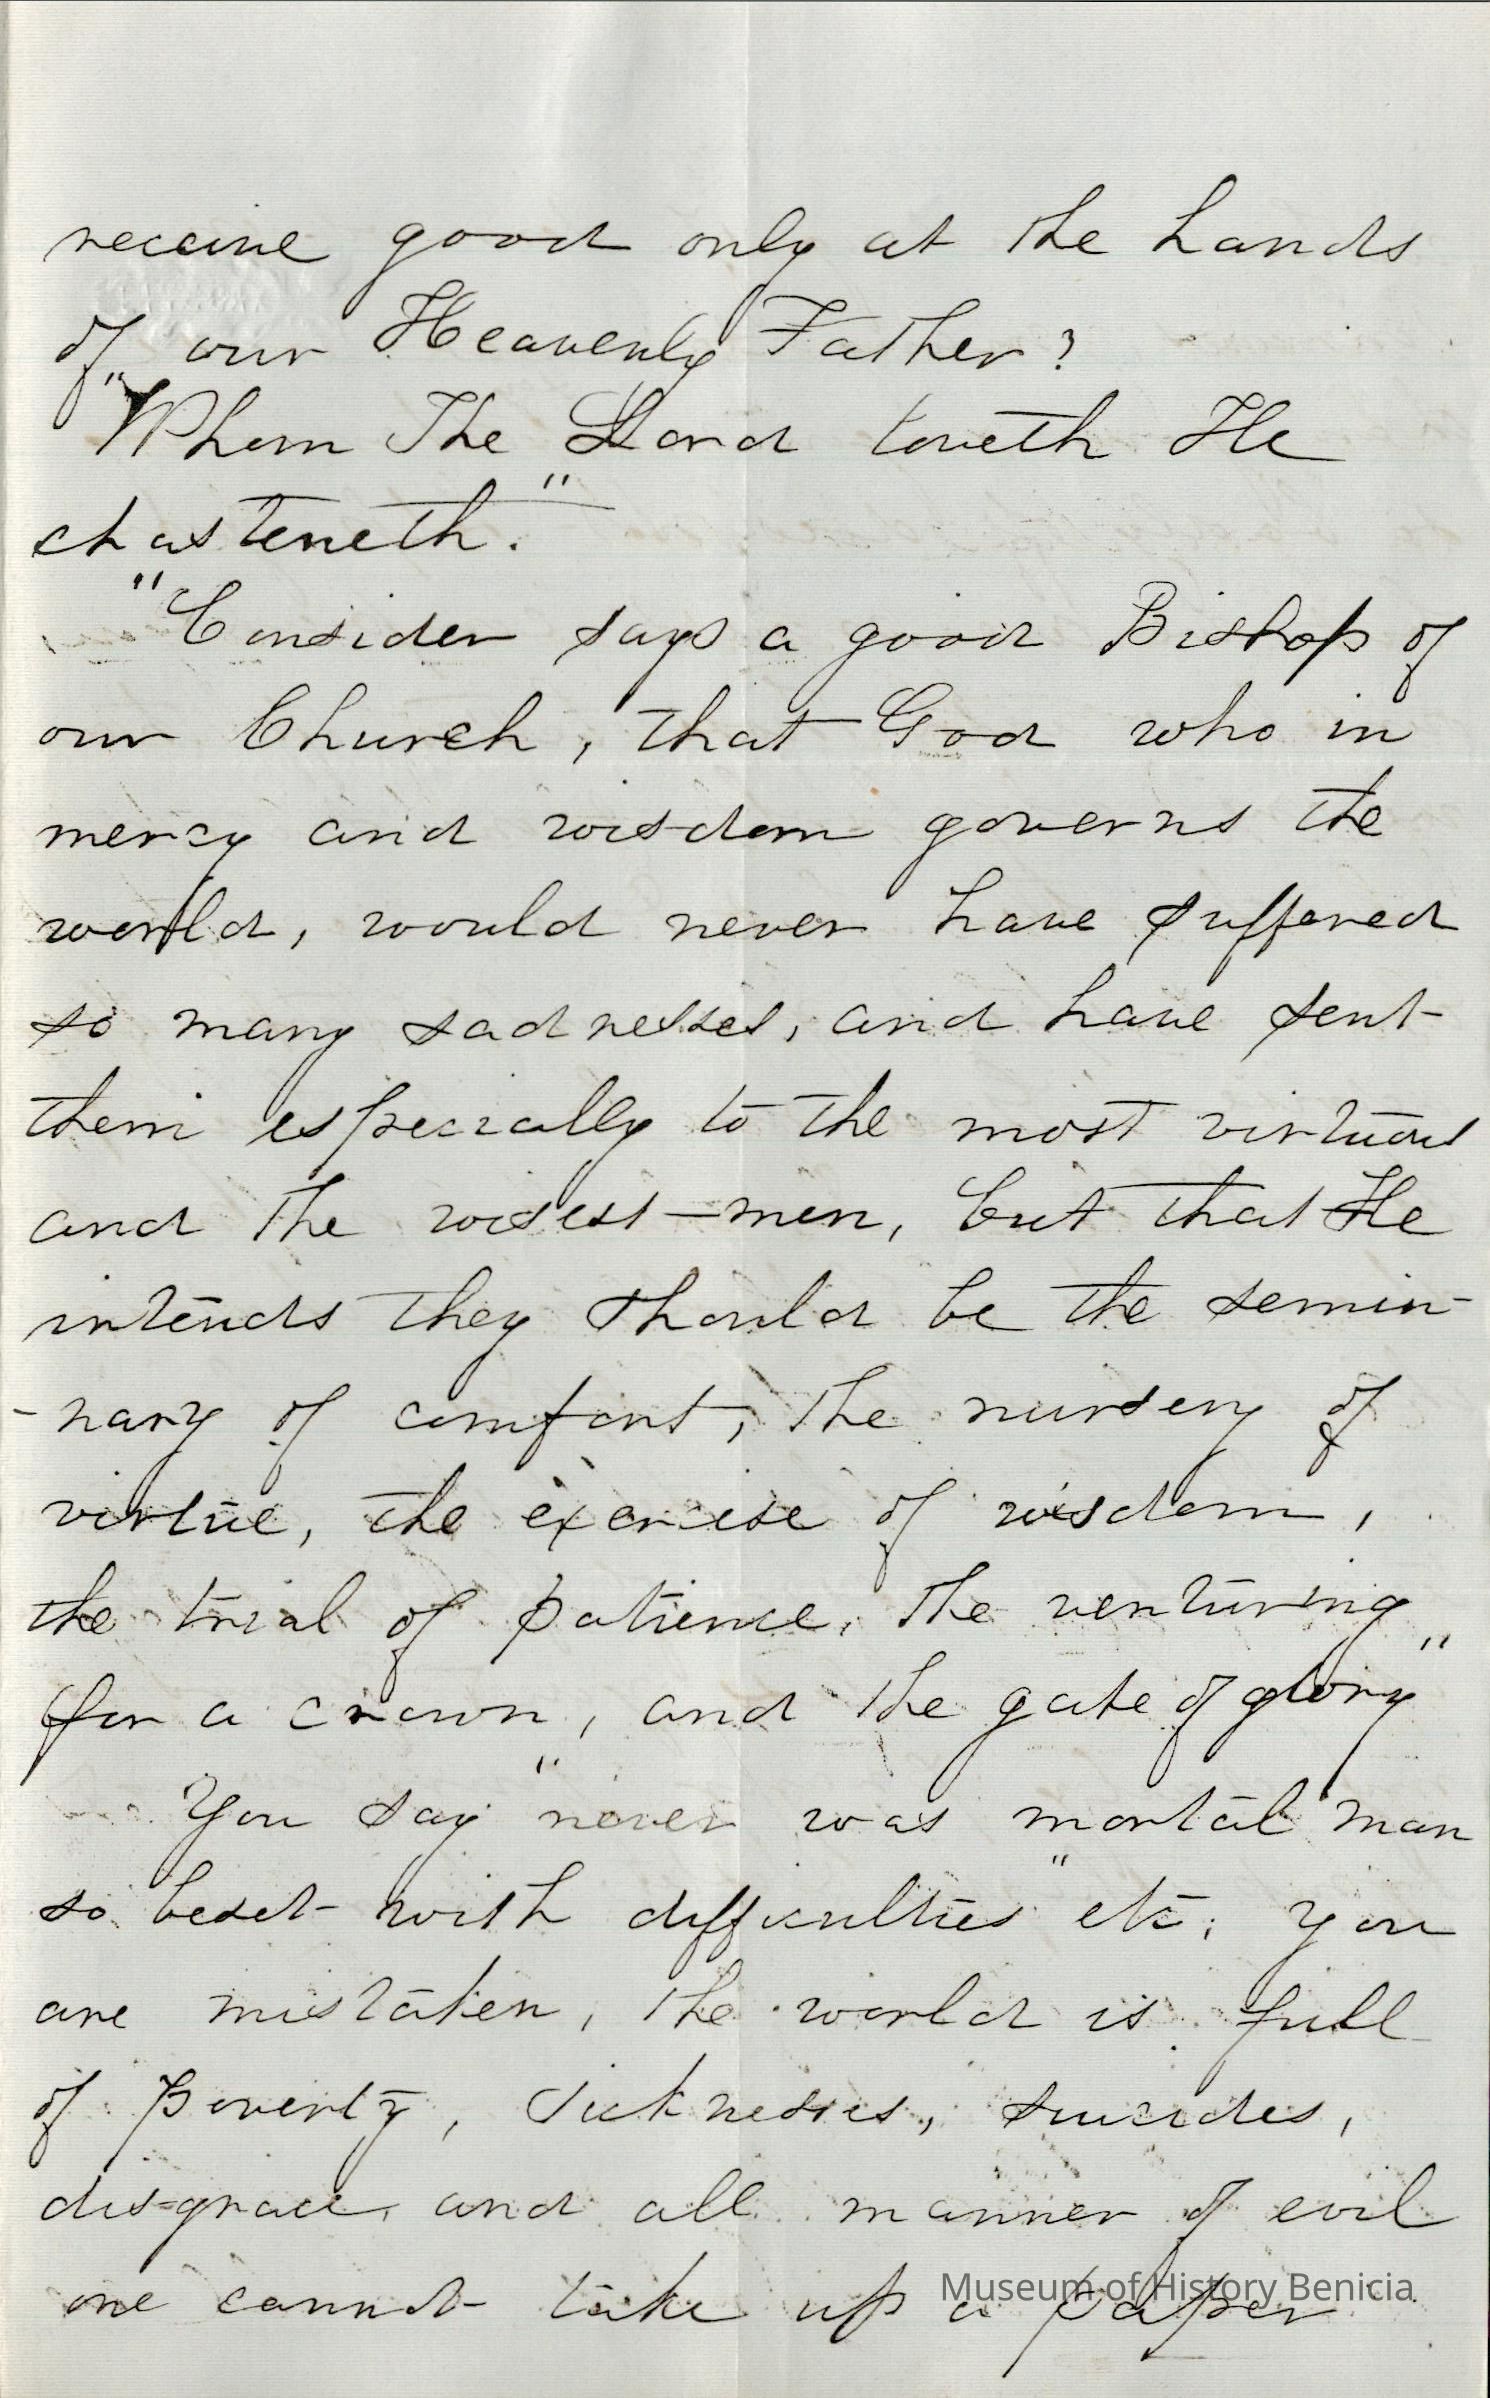 receive good only at the hands
of our Heavenly Father?
"Whom The Lord loveth He
chasteneth."
"Consider says a good Bishop of
our Church, that God who in
mercy and wisdom governs the
world, would never have suffered
so many sadnesses, and have sent
them especially to the most virtuous
and the wisest men, but that He
intends they should be the semin-
-nary of comfort, the nursery of
virtue, the exercise of wisdom,
the trial of patience, the venturing
for a crown, and the gate of glory"
You say "never was mortal man
so beset with difficulties" etc; you
are mistaken, the world is full
of Poverty, sicknesses, suicides,
dis-grace, and all manner of evil
one cannot take up a paper
Museum of History Benicia